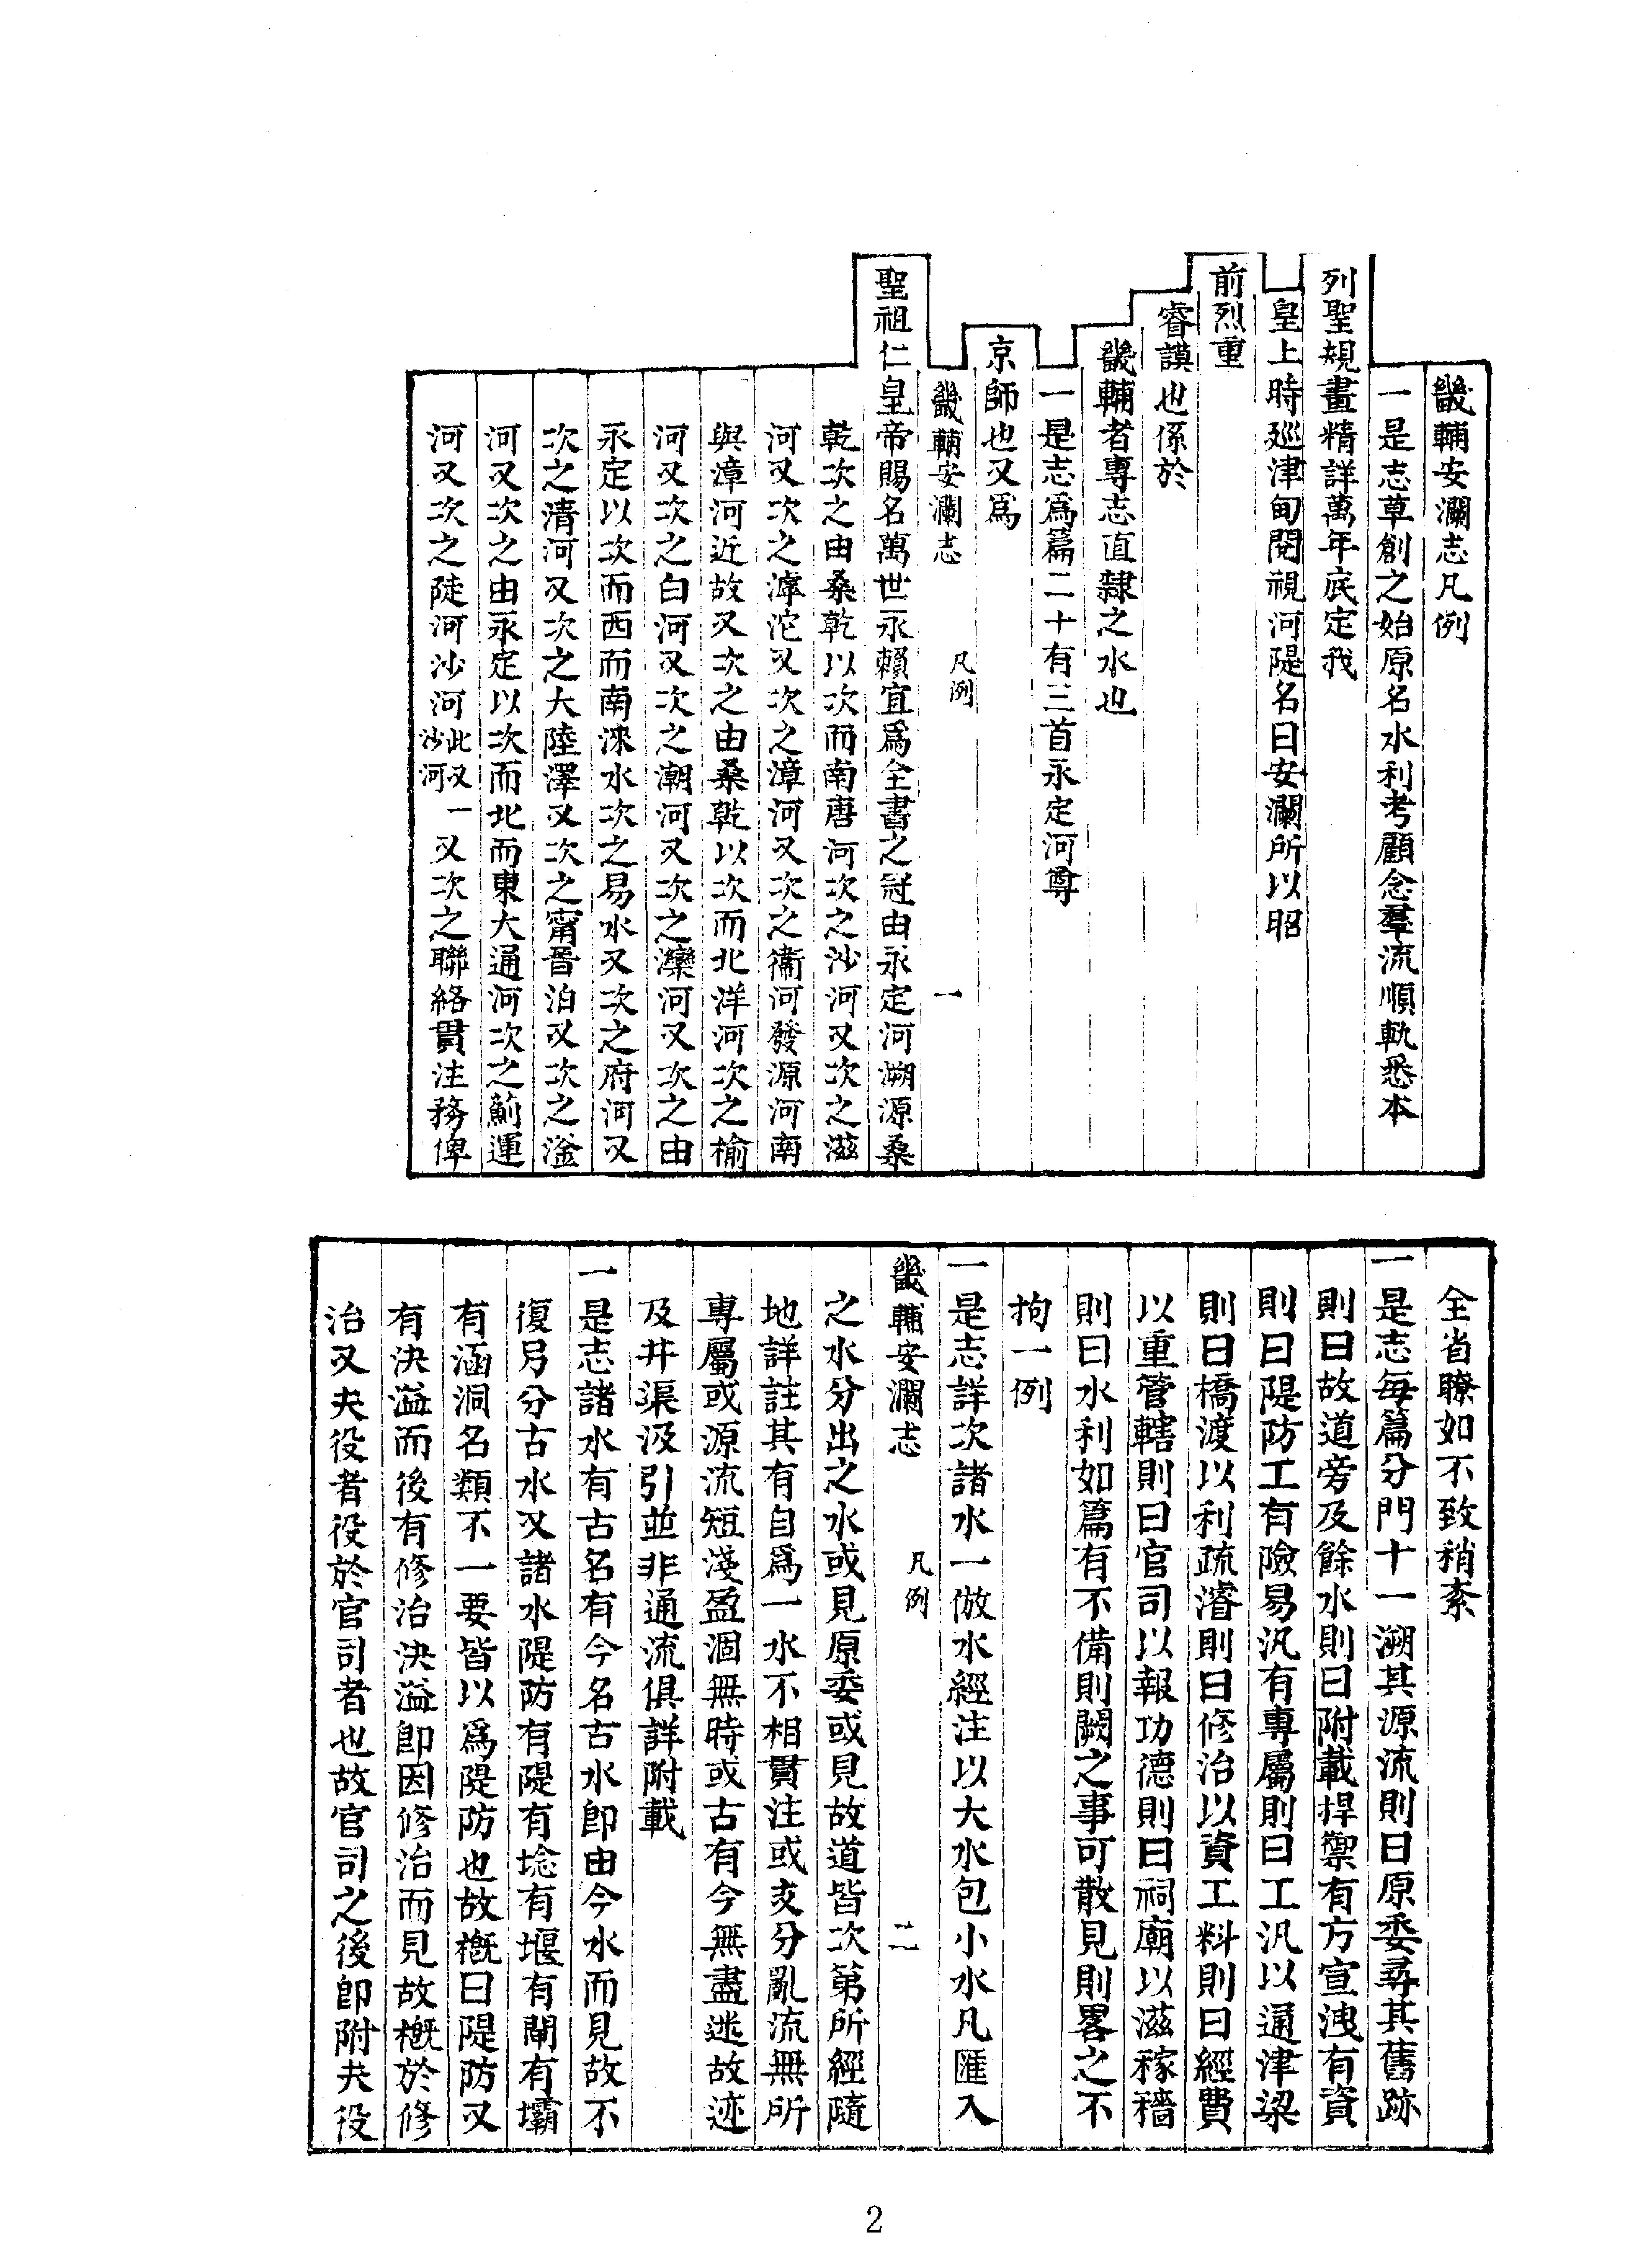 畿輔安瀾志凡例
一是志草創之始原名水利考顧念羣流順軌悉本
列聖規畫精詳萬年底定我
皇上時廵津甸閱視河隄名曰安瀾所以昭
前烈重
睿謨也係於
畿輔者專志直隸之水也
一是志爲篇二十有三首永定河尊
京師也又爲
畿輔安瀾志 凡例 一
聖祖仁皇帝賜名萬世永賴宜爲全書之冠由永定河溯源桑
乾次之由桑乾以次而南唐河次之沙河又次之滋
河又次之滹沱又次之漳河又次之衞河發源河南
與漳河近故又次之由桑乾以次而北洋河次之榆
河又次之白河又次之潮河又次之灤河又次之由
永定以次而西而南淶水次之易水又次之府河又
次之清河又次之大陸澤又次之甯晉泊又次之滏
河又次之由永定以次而北而東大通河次之薊運
河又次之陡河沙河此又一沙河又次之聯絡貫注務俾
全省瞭如不致稍紊
一是志每篇分門十一溯其源流則曰原委尋其舊跡
則曰故道旁及餘水則曰附載捍禦有方宣洩有資
則曰隄防工有險易汎有專屬則曰工汎以通津梁
則曰橋渡以利疏濬則曰修治以資工料則曰經費
以重管轄則曰官司以報功德則曰祠廟以滋稼穡
則曰水利如篇有不備則闕之事可散見則畧之不
拘一例
一是志詳次諸水一倣水經注以大水包小水凡匯入
畿輔安瀾志 凡例 二
之水分出之水或見原委或見故道皆次第所經隨
地詳註其有自爲一水不相貫注或支分亂流無所
專屬或源流短淺盈涸無時或古有今無盡迷故迹
及井渠汲引並非通流俱詳附載
一是志諸水有古名有今名古水卽由今水而見故不
復另分古水又諸水隄防有隄有埝有堰有閘有壩
有涵洞名類不一要皆以爲隄防也故槪曰隄防又
有決溢而後有修治決溢卽因修治而見故槪於修
治又夫役者役於官司者也故官司之後卽附夫役
2